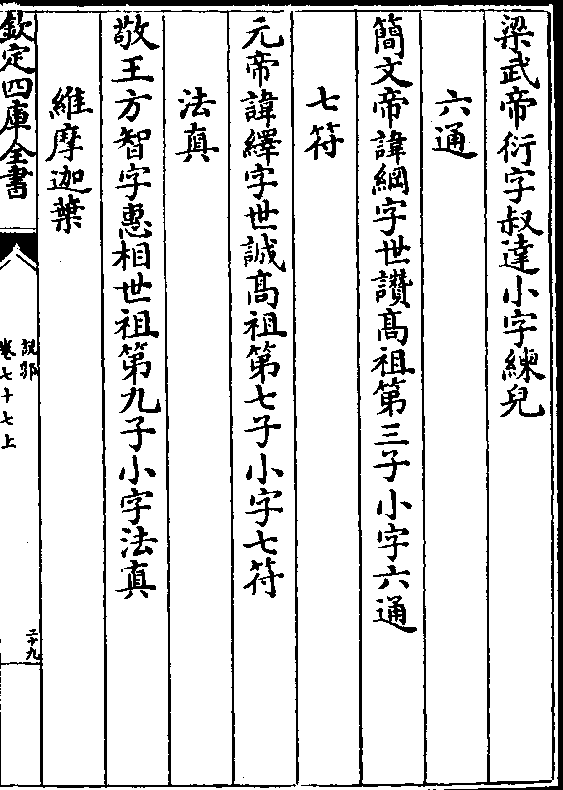 梁武帝衍字叔達小字練兒
六通
簡文帝諱綱字世讚髙祖第三子小字六通
七符
元帝諱繹字世誠髙祖第七子小字七符
法真
敬王方智字惠相世祖第九子小字法真
維摩迦葉
欽定四庫全書
說郛
卷七十七上
二十九